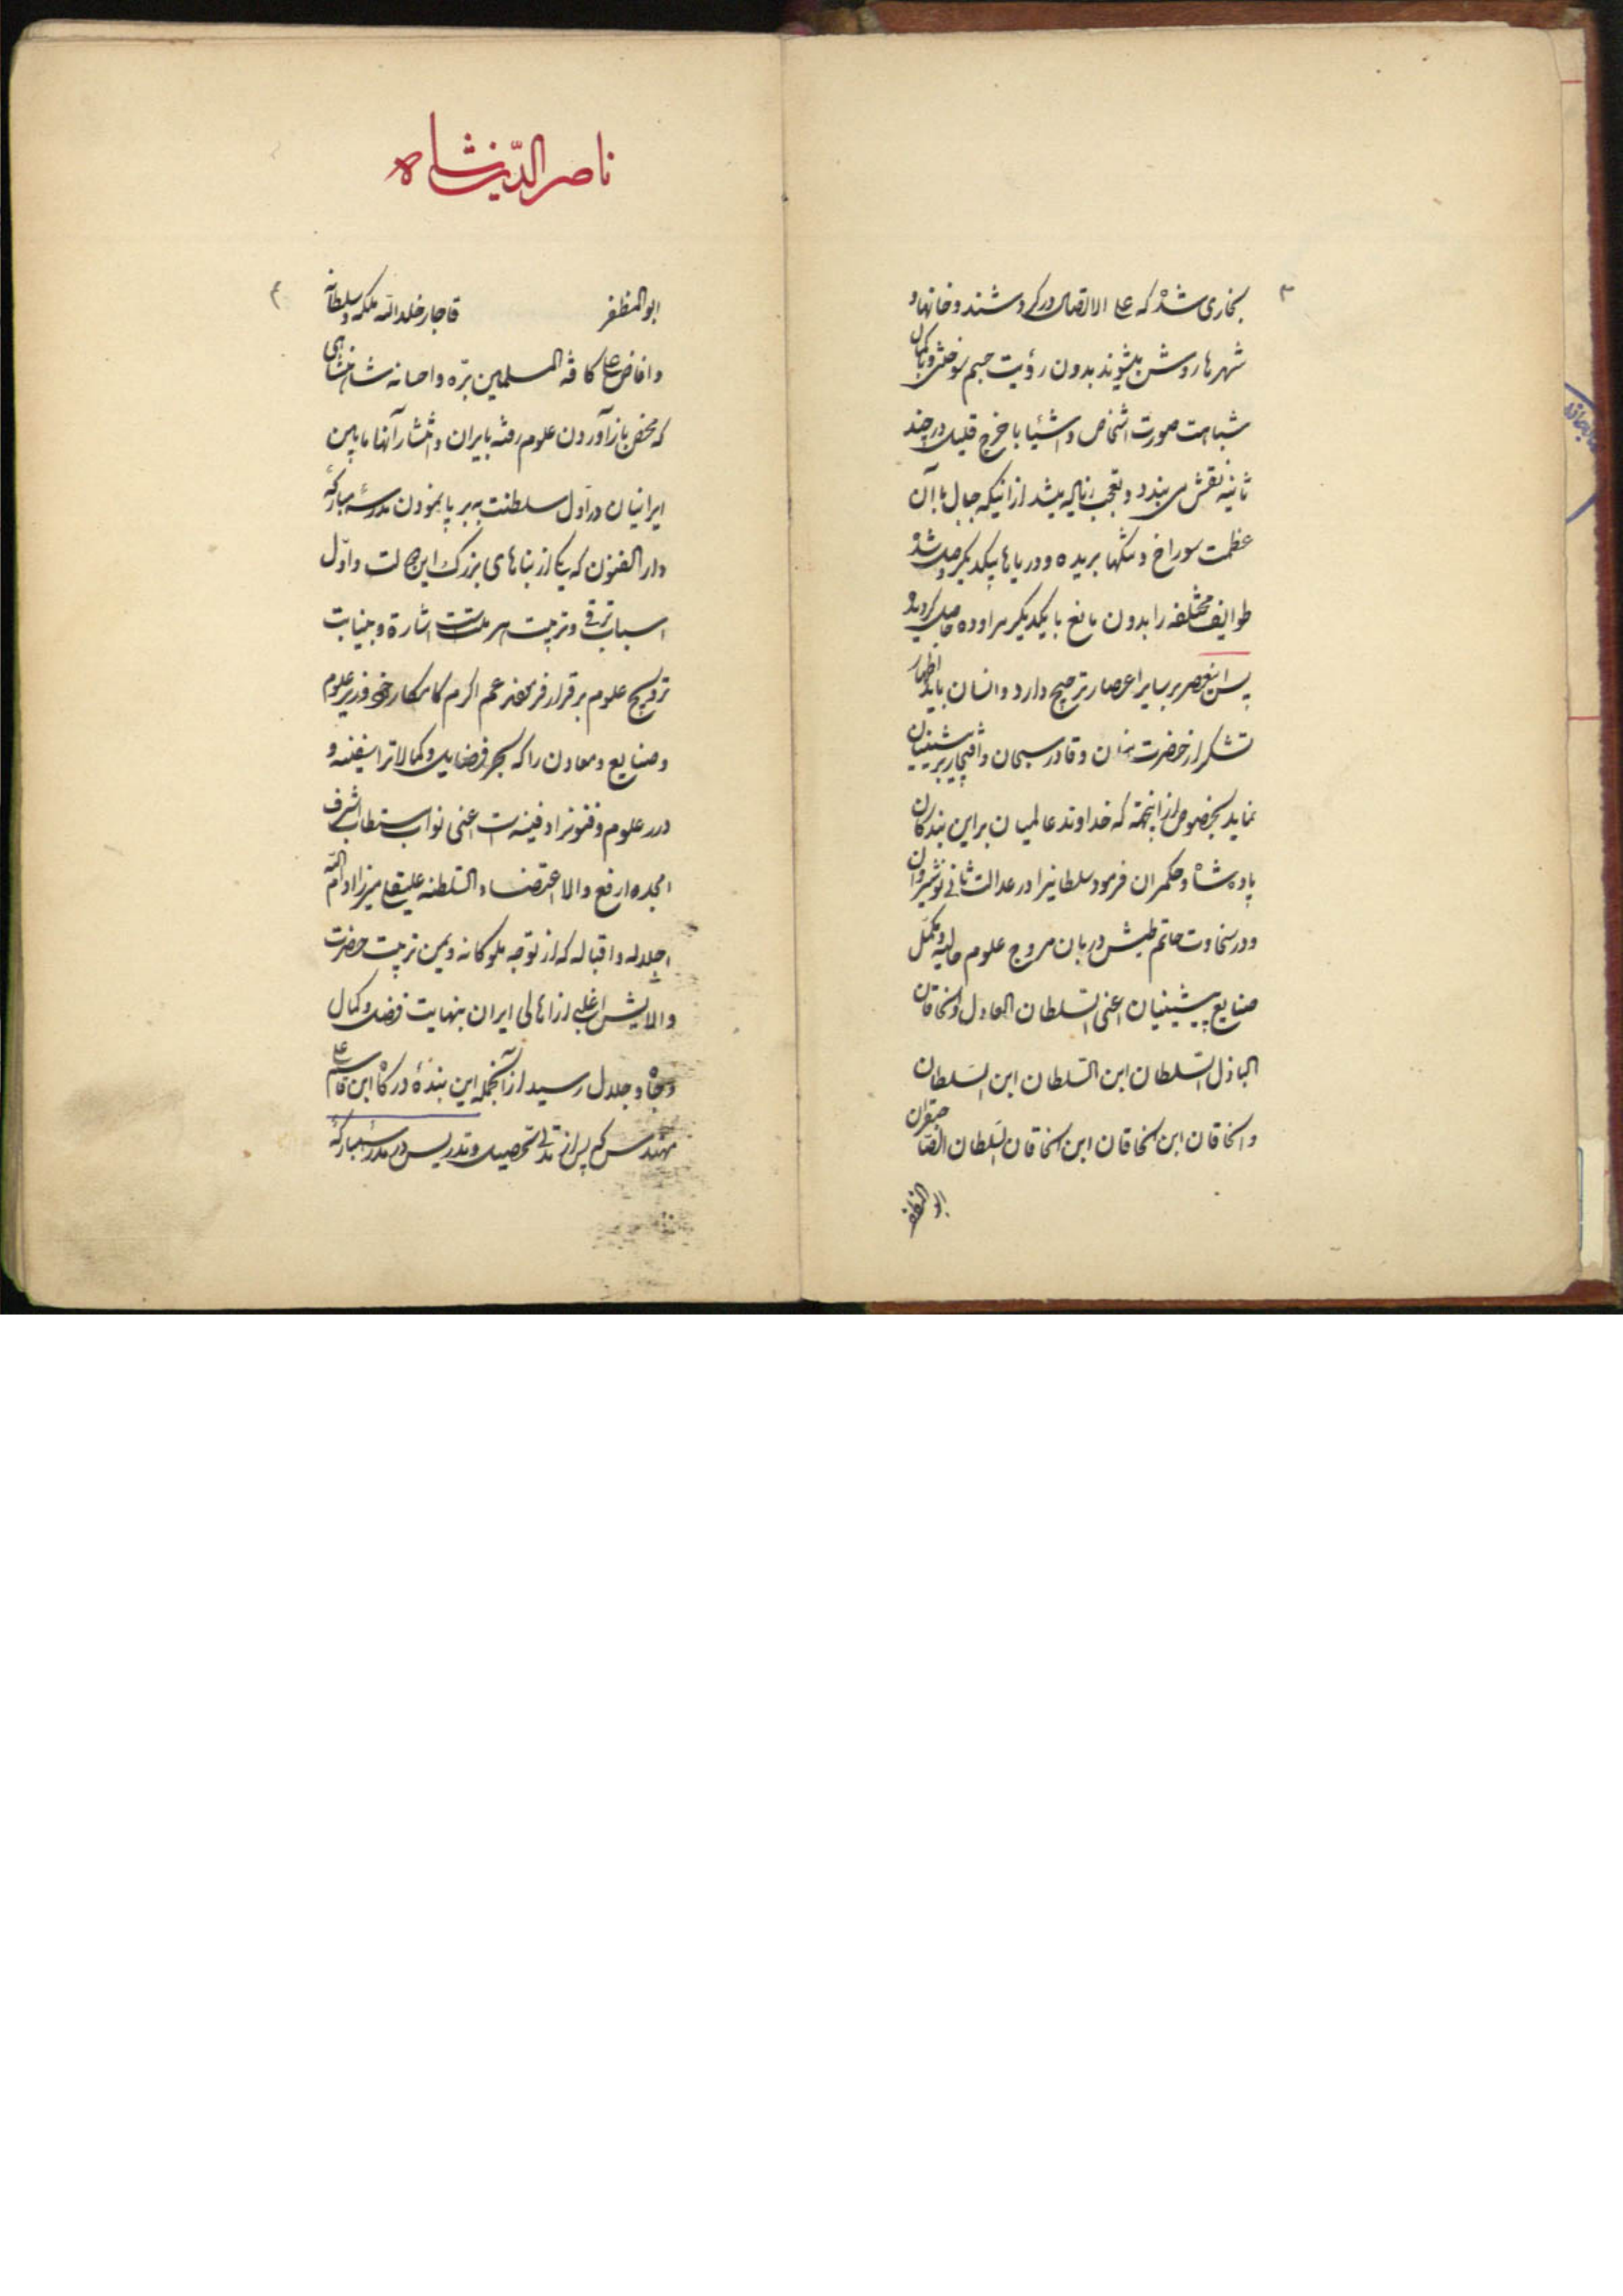 ۳
بخاری شده که علی الاتصال در کردشند و خانها و
شهرها روشن میشوند بدون رؤیت جسم سوختنی و با کمال
شباهت صورت اشخاص و اشیا با خرج قلیل در چند
ثانیه نقش می بندد و تعجب زیاده میشد از اینکه جبال با آن
عظمت سوراخ و تنکها بریده و دریاها بیکدیکر وصل شده
طوایف مختلفه را بدون مانع با یکدیکر مراوده حاصل کردیده
پس اینعصر بر سایر اعصار ترجیح دارد و انسان باید اظهار
تشکر از حضرت منان و قادر سبحان و افتخار بر پیشینیان
نماید بخصوص از اینجهة که خداوند عالمیان بر این بندکان
پادشاه و حکمران فرمود سلطانیرا در عدالت ثانی نوشیروان
و در سخاوت حاتم طیش دربان مروج علوم حالیه و مکمل
صنایع پیشینیان اعنی السلطان العادل و الخاقان
الباذل السلطان ابن السلطان ابن السلطان
و الخاقان ابن الخاقان ابن الخاقان السلطان الصاحبقران
ابو المظفر
ناصر الدّین شاه
۴
ابو المظفر قاجار خلد الله ملکه و سلطانه
و افاض علی کافة المسلمین برّه و احسانه شاهنشاهی
که محض باز آوردن علوم رفته بایران و انتشار آنها مابین
ایرانیان در اوّل سلطنت به بر پا نمودن مدرسه مبارکهٔ
دار الفنون که یکی از بناهای بزرک این دولت و اوّل
اسباب ترقی و تربیت هر ملت است اشارة و بنیابت
ترویج علوم برقرار فرمود عم اکرم کامکار خود وزیر علوم
و صنایع و معادن را که بحر فضایل و کمالاترا سفینه و
درر علوم و فنونرا دفینه است اعنی نواب مستطاب اشرف
امجد ارفع والا اعتضاد السلطنه علیقلی میرزا ادام الله
اجلاله و اقباله که از توجه ملوکانه و یمن تربیت حضرت
والایش اغلبی از اهالی ایران بنهایت فضل و کمال
و جاه و جلال رسید از آنجمله این بندهٔ درکاه ابن قاسم علی
مهندس که پس از مدتی تحصیل و تدریس در مدرسه مبارکهٔ